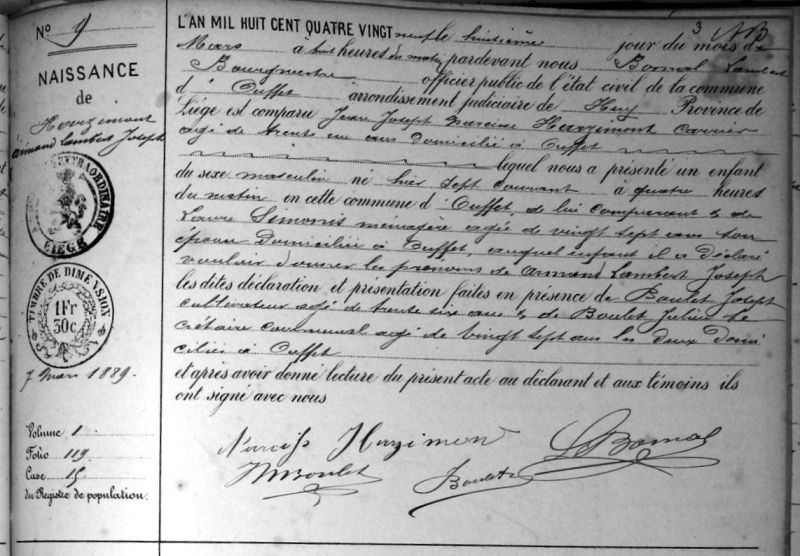 N° 9
NAISSANCE
de
Harzimont
Armand Lambert Joseph
EXTRAORDINAIRE
LIÉGE
TIMBRE DE DIMENSION
1 Fr
30 c.
7 Mars 1889.
Volume 1
Folio 119
Case 15
du Registre de population.
3
L'AN MIL HUIT CENT QUATRE VINGT neuf le huitième jour du mois de
Mars à huit heures du matin pardevant nous Bomal Lambert
Bourgmestre officier public de l'état civil de la commune
d' Ouffet arrondissement judiciaire de Huy Province de
Liége est comparu Jean Joseph Narcisse Harzimont Carrier
agé de trente un ans domicilié à Ouffet
lequel nous a présenté un enfant
du sexe masculin né hier sept courant à quatre heures
du matin en cette commune d' Ouffet, de lui comparant & de
Simonis ménagère agée de vingt sept ans son
épouse domiciliée à Ouffet, auquel enfant il a déclaré
vouloir donner les prénoms de Armand Lambert Joseph
les dites déclaration et présentation faites en présence de Boulet Joseph
cultivateur agé de trente six ans & de Boulet Julien Se
crétaire communal agé de vingt sept ans les deux domi
ciliés à Ouffet
et après avoir donné lecture du présent acte au déclarant et aux témoins ils
ont signé avec nous
Narcisse Hazimon
LBomal
Boulet
JBoulet